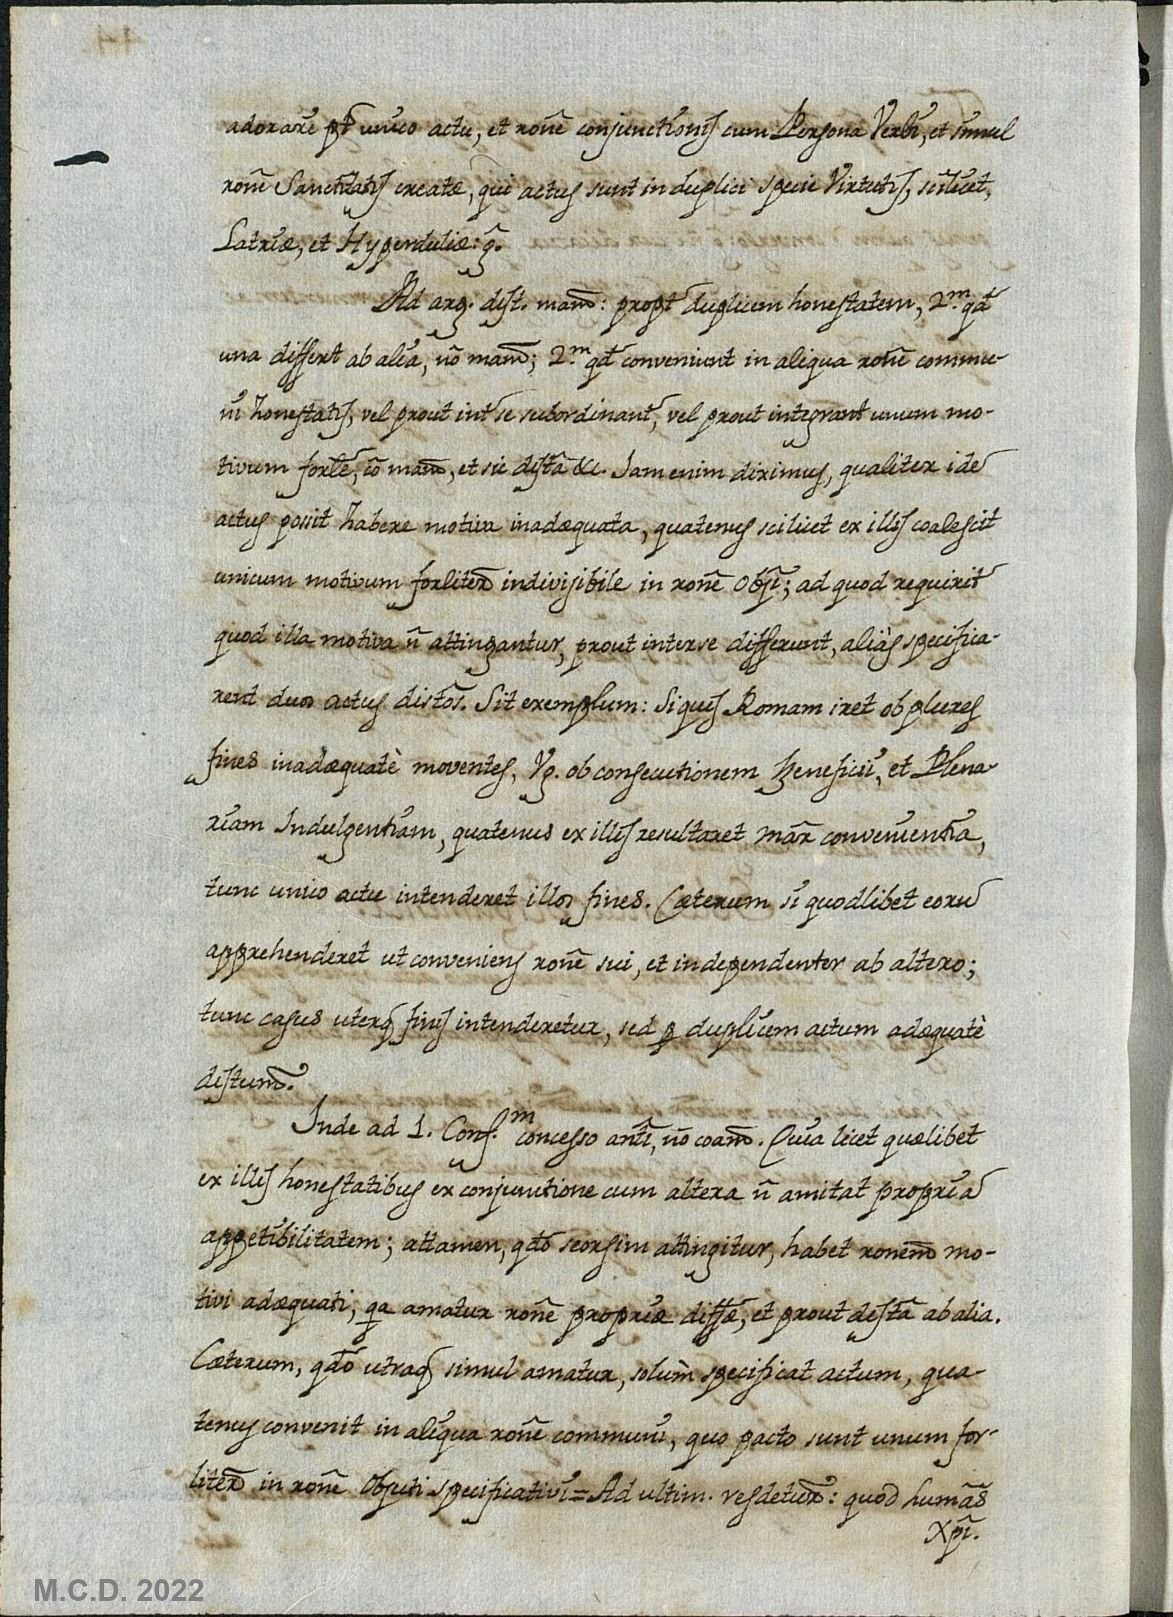 adorare pt̃ unico actu, et ronẽ conjunctionis cum Persona Verbi, et simul
ronẽ Sanctitatis creatæ, qui actus sunt in duplici specie Virtutis, scilicet,
Latriæ, et Hyperduliæ: g̃.
Ad arg. dist. mam̃: propt̃ duplicem honestatem, 2.m qd̃
una differt ab alia, nõ mam̃; 2.m qd̃ conveniunt in aliqua ronẽ commu-
ni honestatis, vel prout int̃ se subordinant̃, vel prout integrant unum mo-
tivum forlẽ, cõ mam̃, et sic distã &c. Jam enim diximus, qualiter idẽ
actus possit habere motiva inadæquata, quatenus scilicet ex illis coalescit
unicum motivum forliter̃ indivisibile in ronẽ Objĩ; ad quod requirit̃
quod illa motiva ñ attingantur, prout inter se differunt, aliàs specifica-
rent duos actus distõs. Sit exemplum: Si quis Romam iret ob plures
fines inadæquatè moventes, Vg. ob consecutionem Beneficii, et Plena-
riam Indulgentiam, quatenus ex illis resultaret mãr convenientia,
tunc unico actu intenderet illos fines. Cæterum si quodlibet eorũ
apprehenderet ut conveniens ronẽ sui, et independenter ab altero;
tunc casus uterq̃ finis intenderetur, sed p duplicem actum adæquatè
distum̃.
Inde ad 1. Conf.m concesso antĩ, nõ coam̃. Quia licet quælibet
ex illis honestatibus ex conjunctione cum altera ñ amitat propriã
appetibilitatem; attamen, qdõ seorsim attingitur, habet ronem̃ mo-
tivi adæquati, qa amatur ronẽ propriæ diffæ̃, et prout distã ab alia.
Cæterum, qdõ utraq̃ simul amatur, solùm specificat actum, qua-
tenus convenit in aliqua ronẽ communi, quo pacto sunt unum for-
liter̃ in ronẽ Objecti specificativi = Ad ultim. resdetur̃: quod humãs
Xpĩ.
M.C.D. 2022